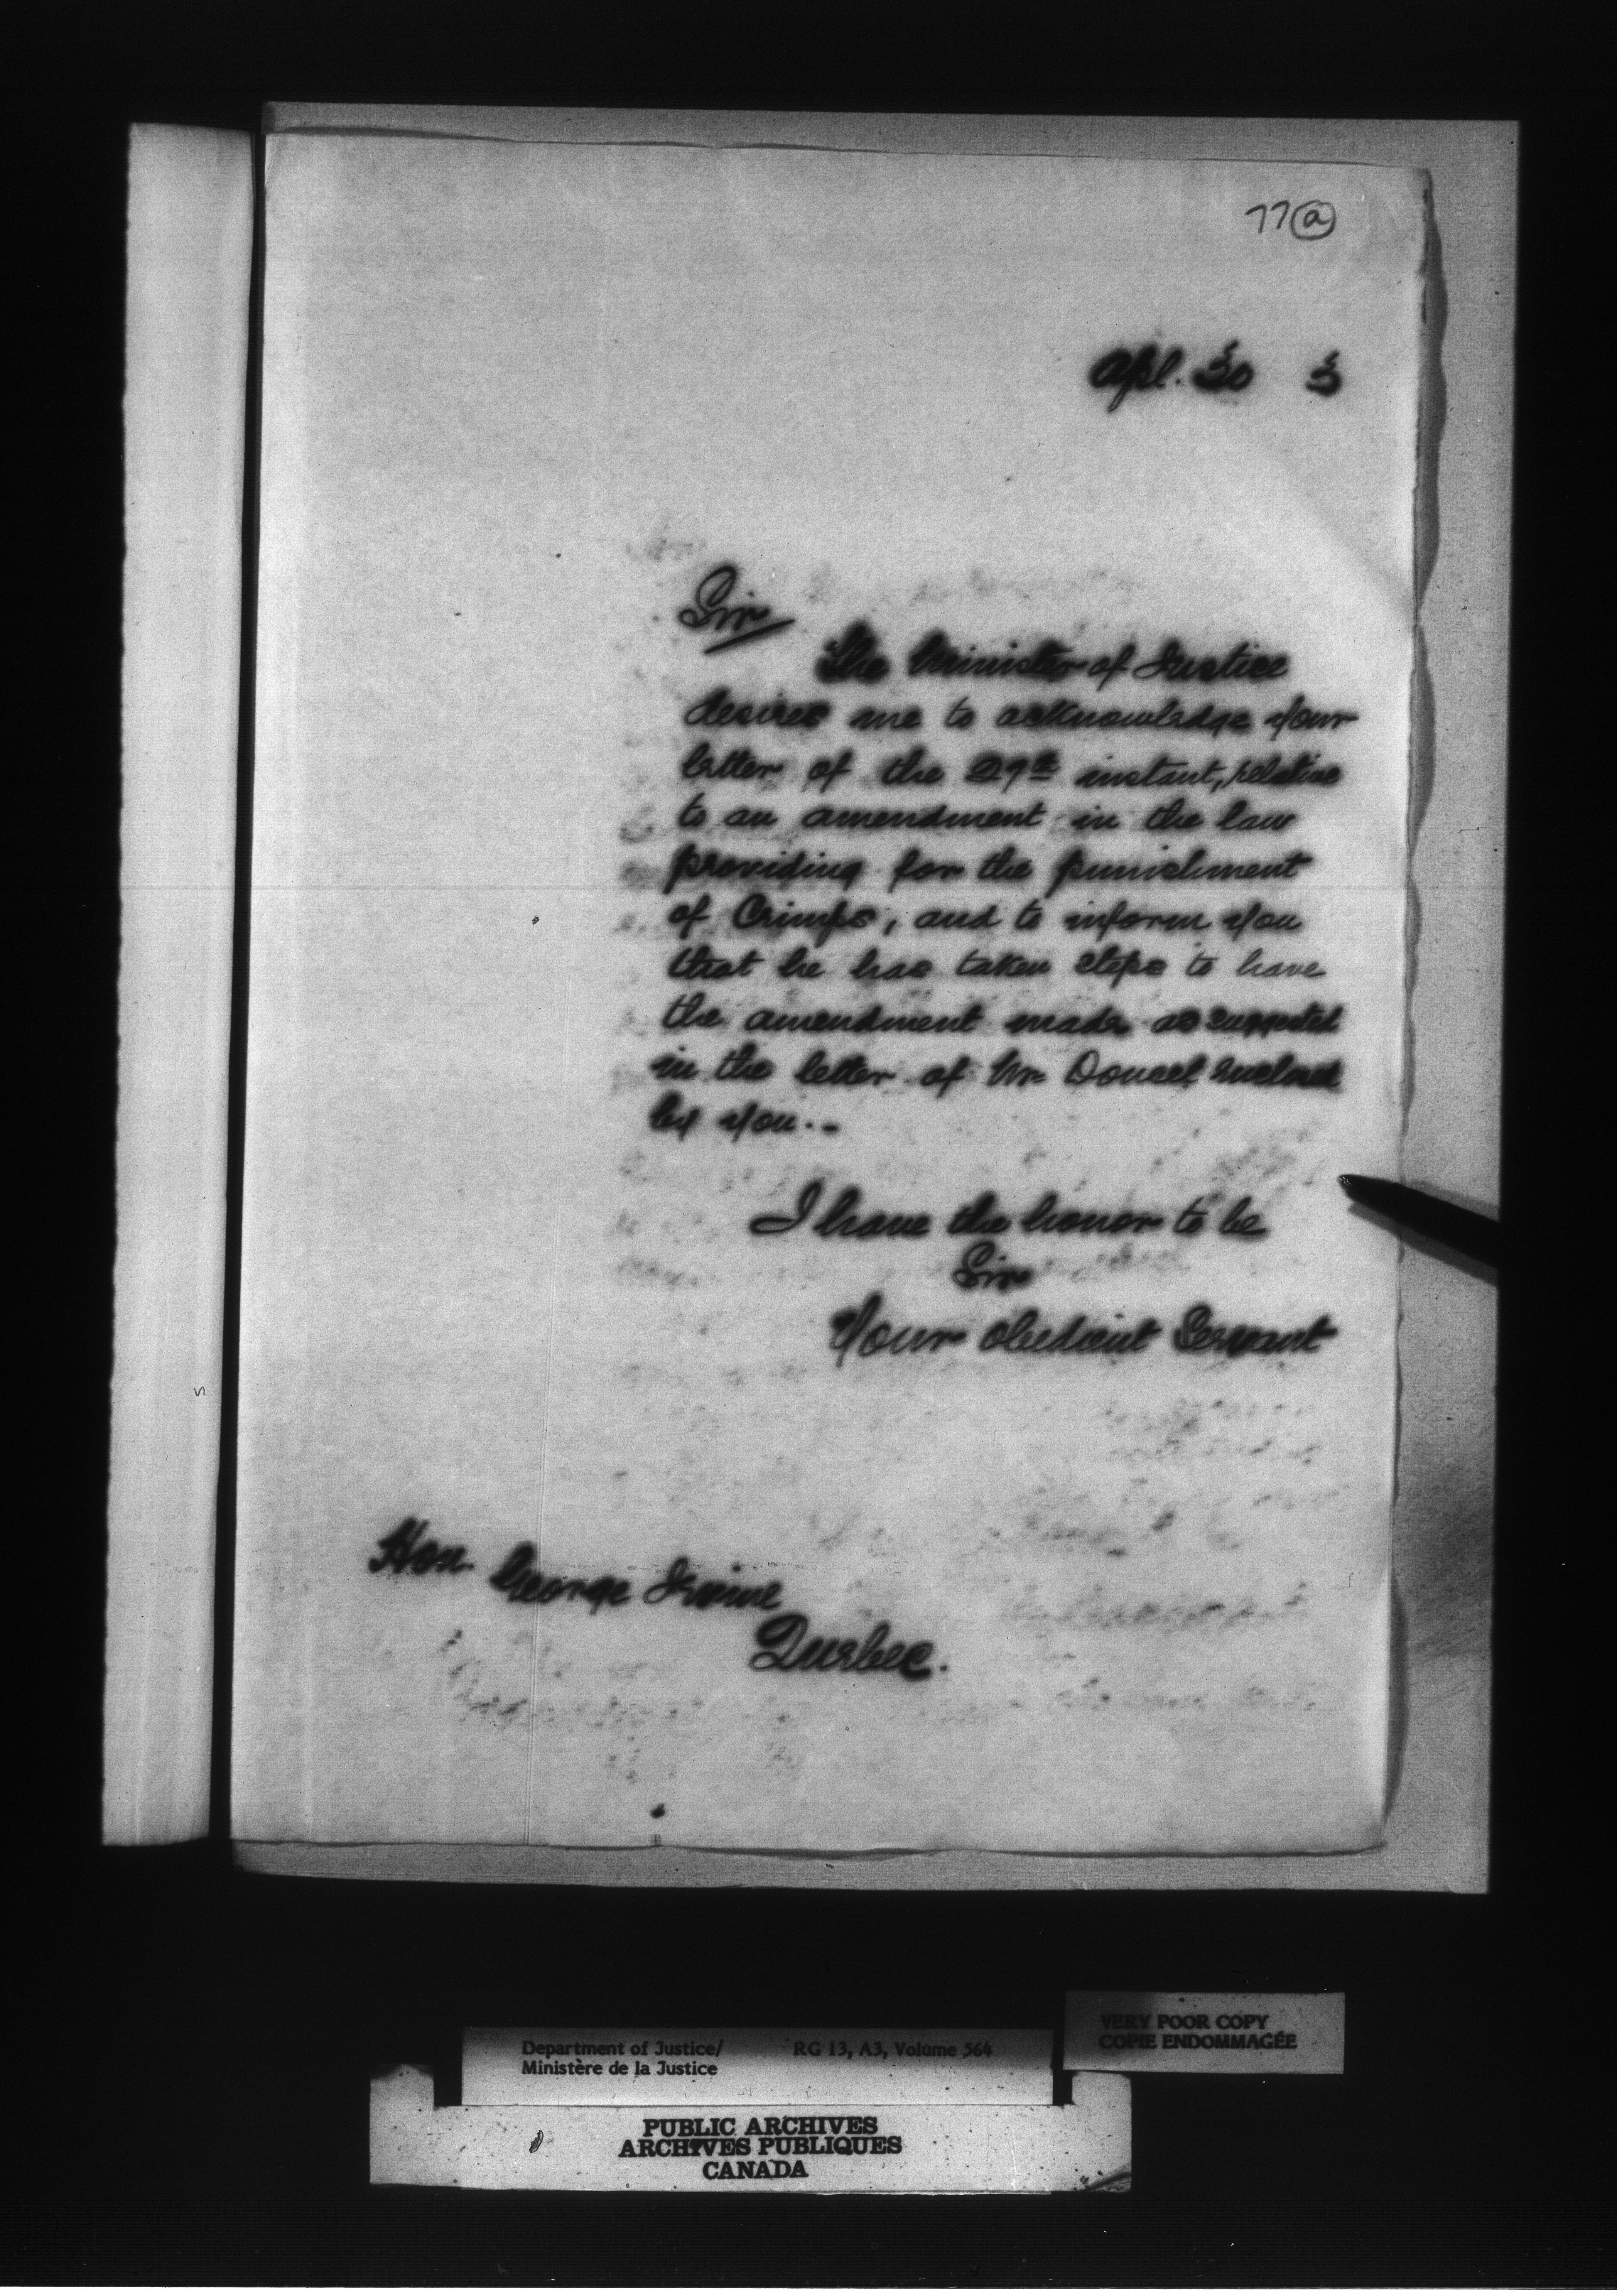 77 a
Apl. 30 3
Sir
The Minister of Justice
desires me to acknowledge your
letter of the 29th instant, relative
to an amendment in the law
providing for the punishment
of Crimps, and to inform you
that he has taken steps to have
the amendment made as suggested
in the letter of Mr Doucet enclosed
by you.-
I have the honor to be
Sir
Your obedient Servant
Hon George Irvine
Quebec.
Department of Justice/ RG 13, A3, Volume 564
Ministère de la Justice
VERY POOR COPY
COPIE ENDOMMAGÉE
PUBLIC ARCHIVES
ARCHIVES PUBLIQUES
CANADA